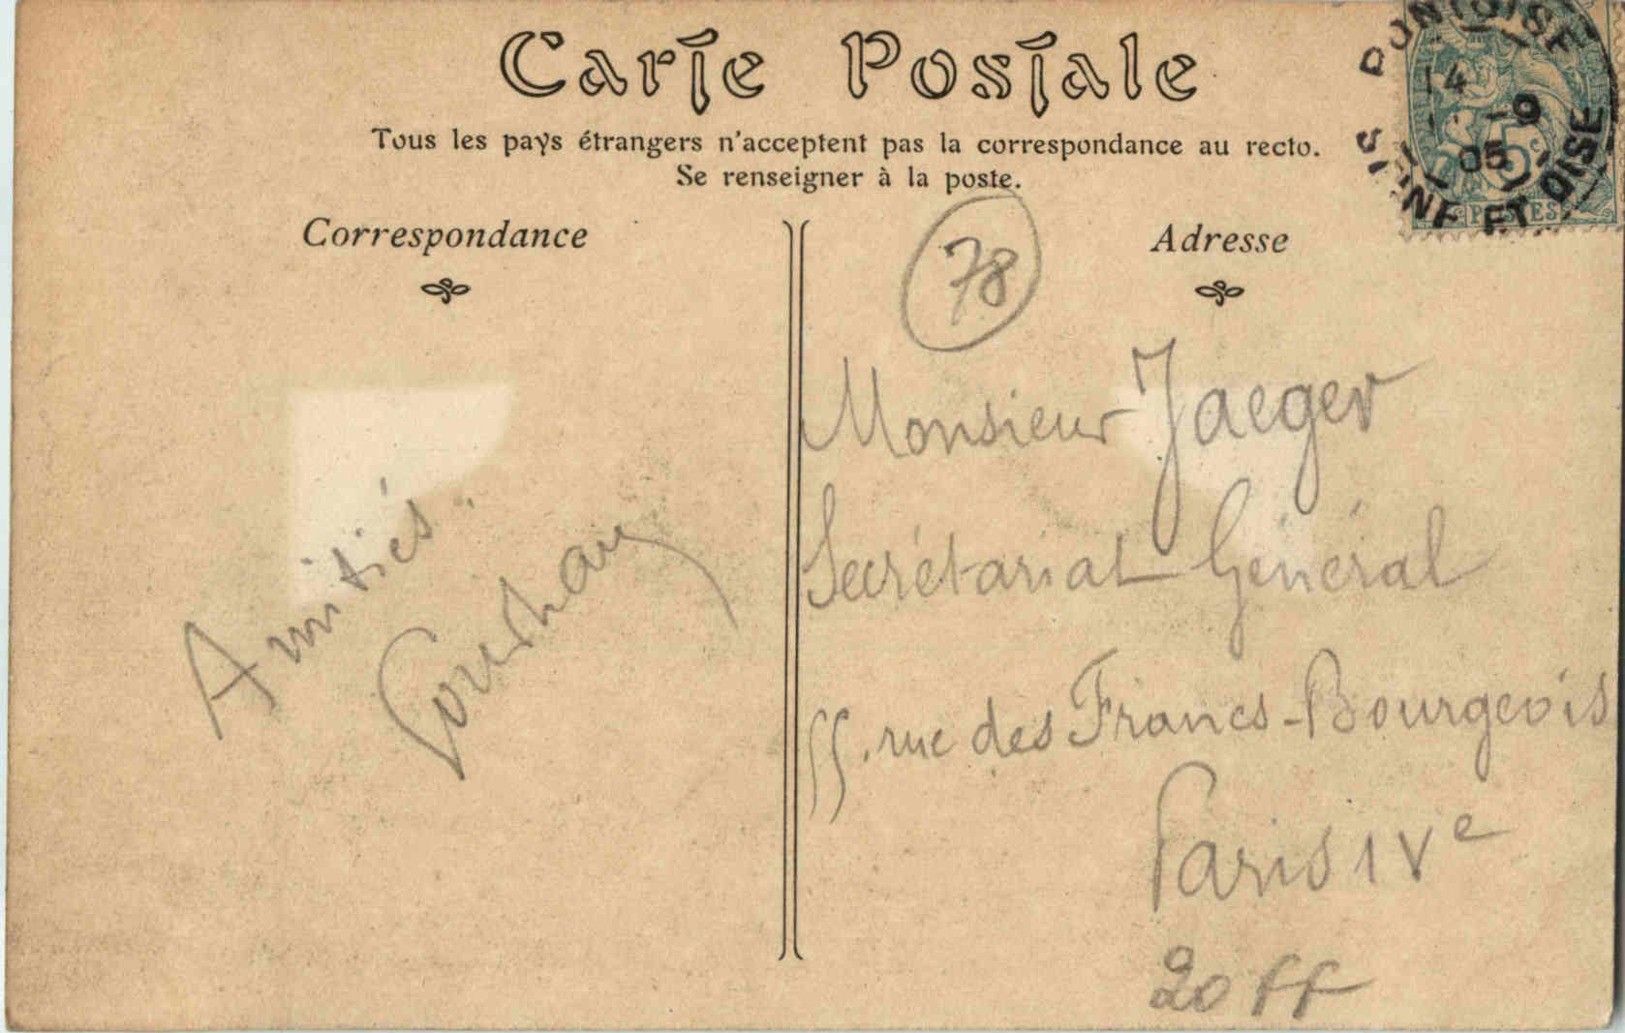 Carte Postale
Tous les pays étrangers n'acceptent pas la correspondance au recto.
Se renseigner à la poste.
Correspondance
Adresse
PONTOISE
14 -9
05
SEINE ET OISE
5c
POSTES
78
Amitiés.
Monsieur Jaeger
Secrétariat Général
55, rue des Francs-Bourgeois
Paris IVe
20 FF